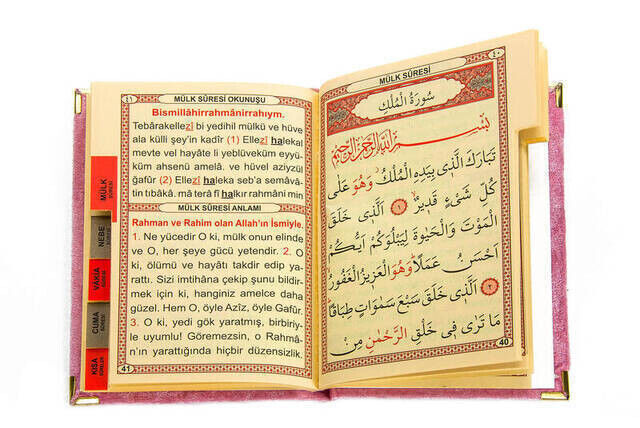 ٤٠
MÜLK SÛRESİ
سُورَةُ الْمُلْكِ
بِسْمِ اللّٰهِ الرَّحْمٰنِ الرَّحِيمِ
تَبَارَكَ الَّذ۪ي بِيَدِهِ الْمُلْكُ وَهُوَ عَلٰى
كُلِّ شَيْءٍ قَد۪يرٌ ١ اَلَّذ۪ي خَلَقَ
الْمَوْتَ وَالْحَيٰوةَ لِيَبْلُوَكُمْ اَيُّكُمْ
اَحْسَنُ عَمَلًا وَهُوَ الْعَز۪يزُ الْغَفُورُ
٢ اَلَّذ۪ي خَلَقَ سَبْعَ سَمٰوَاتٍ طِبَاقًا
مَا تَرٰى ف۪ي خَلْقِ الرَّحْمٰنِ مِنْ
40
٤١
MÜLK SÛRESİ OKUNUŞU
Bismillâhirrahmânirrahıym.
Tebârakellezî bi yedihil mülkü ve hüve
ala külli şey'in kadîr (1) Ellezî halekal
mevte vel hayâte li yeblüveküm eyyü-
küm ahsenü amelâ. ve hüvel aziyzül
ğafûr (2) Ellezî haleka seb'a semâvâ-
tin tıbâkâ. mâ terâ fî halkır rahmâni min
MÜLK SÛRESİ ANLAMI
Rahman ve Rahim olan Allah'ın İsmiyle.
1. Ne yücedir O ki, mülk onun elinde
ve O, her şeye gücü yetendir. 2. O
ki, ölümü ve hayâtı takdir edip yarattı.
Sizi imtihâna çekip şunu bildir-
mek için ki, hanginiz amelce daha
güzel. Hem O, öyle Azîz, öyle Gafûr.
3. O ki, yedi gök yaratmış, birbiriy-
le uyumlu! Göremezsin, o Rahmâ-
n'ın yarattığında hiçbir düzensizlik.
41
MÜLK
SÛRESİ
NEBE
SÛRESİ
VÂKIA
SÛRESİ
CUMA
SÛRESİ
KISA
SÛRELER